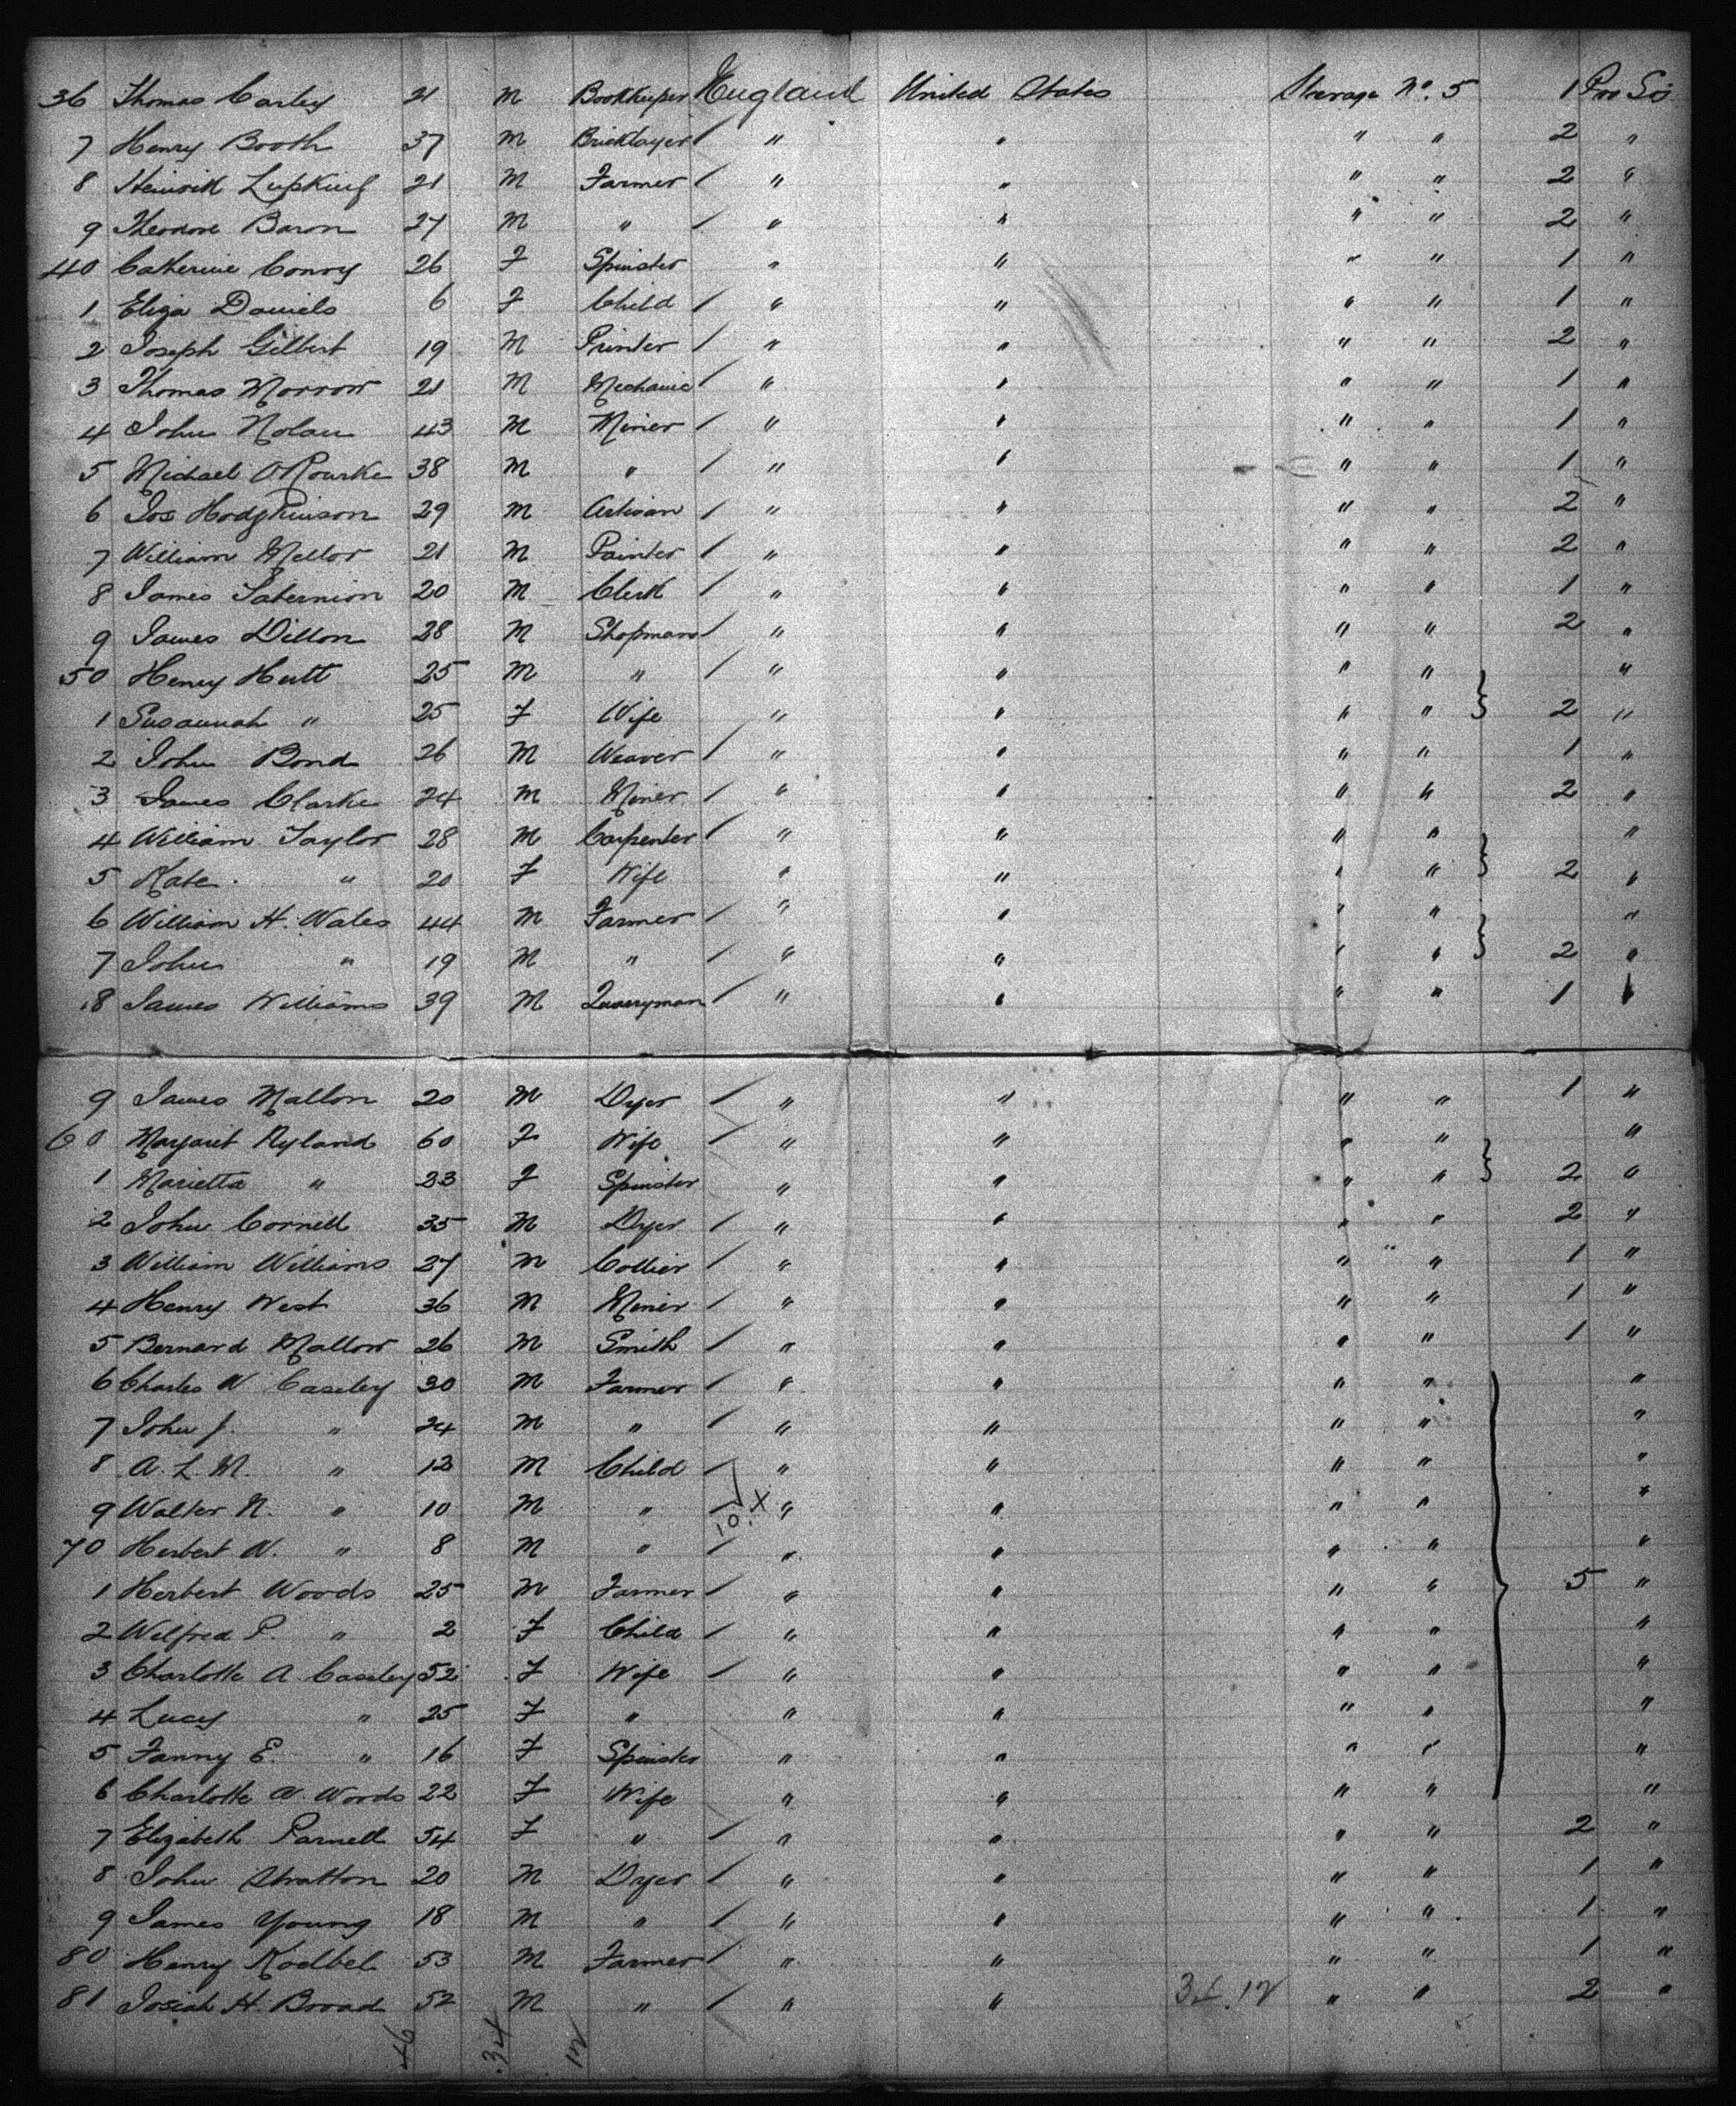 36 Thomas Carley 21 M Bookkeeper England United States Steerage No. 5 1 Pro So
7 Henry Booth 37 M Bricklayer / " " " " 2 "
8 Heinrich 21 M Farmer / " " " " 2 "
9 Theodore Baron 27 M " / " " " " 2 "
40 Catherine Conroy 26 F Spinster " " " " 1 "
1 Eliza Daniels 6 F Child / " " " " 1 "
2 Joseph Gilbert 19 M Printer / " " " " 2 "
3 Thomas Morrow 21 M Mechanic / " " " " 1 "
4 John Nolan 43 M Miner / " " " " 1 "
5 Michael O'Rourke 38 M " / " " " " 1 "
6 Jos Hodgkinson 29 M Artisan / " " " " 2 "
7 William Mellor 21 M Painter / " " " " 2 "
8 James 20 M Clerk / " " " " 1 "
9 James Dillon 28 M Shopman / " " " " 2 "
50 Henry Hutt 25 M " / " " " " "
1 Susannah " 25 F Wife " " " " } 2 "
2 John Bond 26 M Weaver / " " " " 1 "
3 James Clarke 24 M Miner / " " " " 2 "
4 William Taylor 28 M Carpenter / " " " " "
5 Kate " 20 F Wife " " " " } 2 "
6 William H. Wales 44 M Farmer / " " " " "
7 John " 19 M " / " " " " } 2 "
8 James Williams 39 M Quarryman / " " " " 1 "
9 James Mallon 20 M Dyer / " " " " 1 "
60 Margaret Ryland 60 F Wife / " " " " "
1 Marietta " 23 F Spinster " " " " } 2 "
2 John Cornell 35 M Dyer / " " " " 2 "
3 William Williams 27 M Collier / " " " " 1 "
4 Henry West 36 M Miner / " " " " 1 "
5 Bernard Mallow 26 M Smith / " " " " 1 "
6 Charles W Caseley 30 M Farmer / " " " " "
7 John J. " 24 M " / " " " " "
8 A. L. M. " 12 M Child / " " " " "
9 Walter N. " 10 M " / 10.X " " " " "
70 Herbert W. " 8 M " / " " " " "
1 Herbert Woods 25 M Farmer / " " " " } 5 "
2 Wilfred P. " 2 F Child / " " " " "
3 Charlotte A Caseley 52 F Wife / " " " " "
4 Lucy " 25 F " " " " " "
5 Fanny E. " 16 F Spinster " " " " "
6 Charlotte W. Woods 22 F Wife " " " " "
7 Elizabeth Parnell 54 F " / " " " " 2 "
8 John Stratton 20 M Dyer / " " " " 1 "
9 James Young 18 M " / " " " " 1 "
80 Henry Koelbel 53 M Farmer / " " " " 1 "
81 Josiah H. Broad 52 M " / " " 34.12 " " 2 "
46 34 12